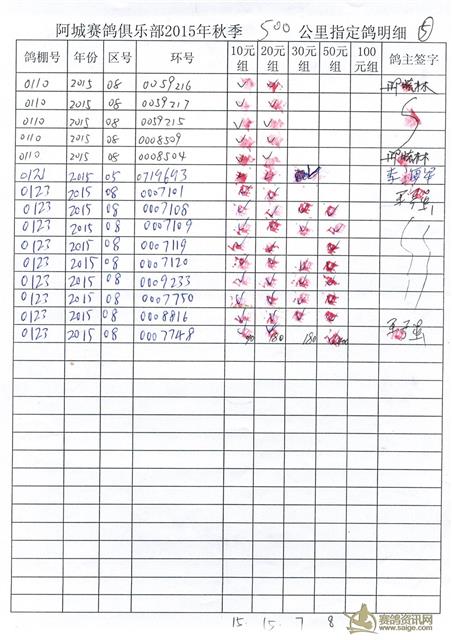 阿城赛鸽俱乐部2015年秋季 500 公里指定鸽明细 ⑤
鸽棚号 年份 区号 环号 10元组 20元组 30元组 50元组 100元组 鸽主签字
0110 2015 08 0059216
0110 2015 08 0059217
0110 2015 08 0059215
0110 2015 08 0008509
0110 2015 08 0008504
0121 2015 05 0719643
0123 2015 08 0007101
0123 2015 08 0007108
0123 2015 08 0007109
0123 2015 08 0007119
0123 2015 08 0007120
0123 2015 08 0009233
0123 2015 08 0007750
0123 2015 08 0008816
0123 2015 08 0007748
15. 15. 7 8
赛鸽资讯网
www.saige.com